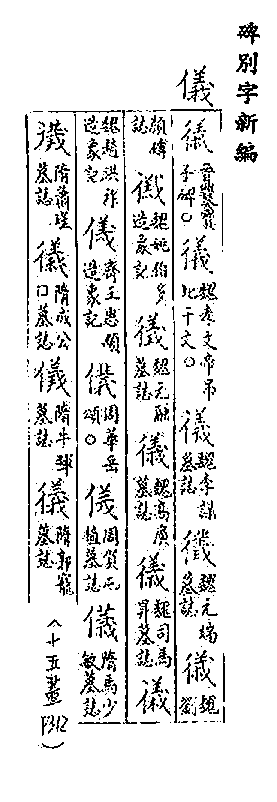 碑別字新編
儀
儀 晉爨寶子碑。儀 魏孝文帝弔比干文。儀 魏李謀墓誌 儀 魏元端墓誌 儀 魏劉
顏墓誌 儀 魏姚伯多造象記 儀 魏元融墓誌 儀 魏高廣墓誌 儀 魏司馬昇墓誌 儀
魏趙洪祚造象記 儀 齊王思順造象記 儀 周華岳頌。儀 周賀屯植墓誌 儀 隋馬少敏墓誌
儀 隋蕭瑾墓誌 儀 隋成公囗墓誌 儀 隋牛墓誌 儀 隋郭龍墓誌
(十五畫P312)